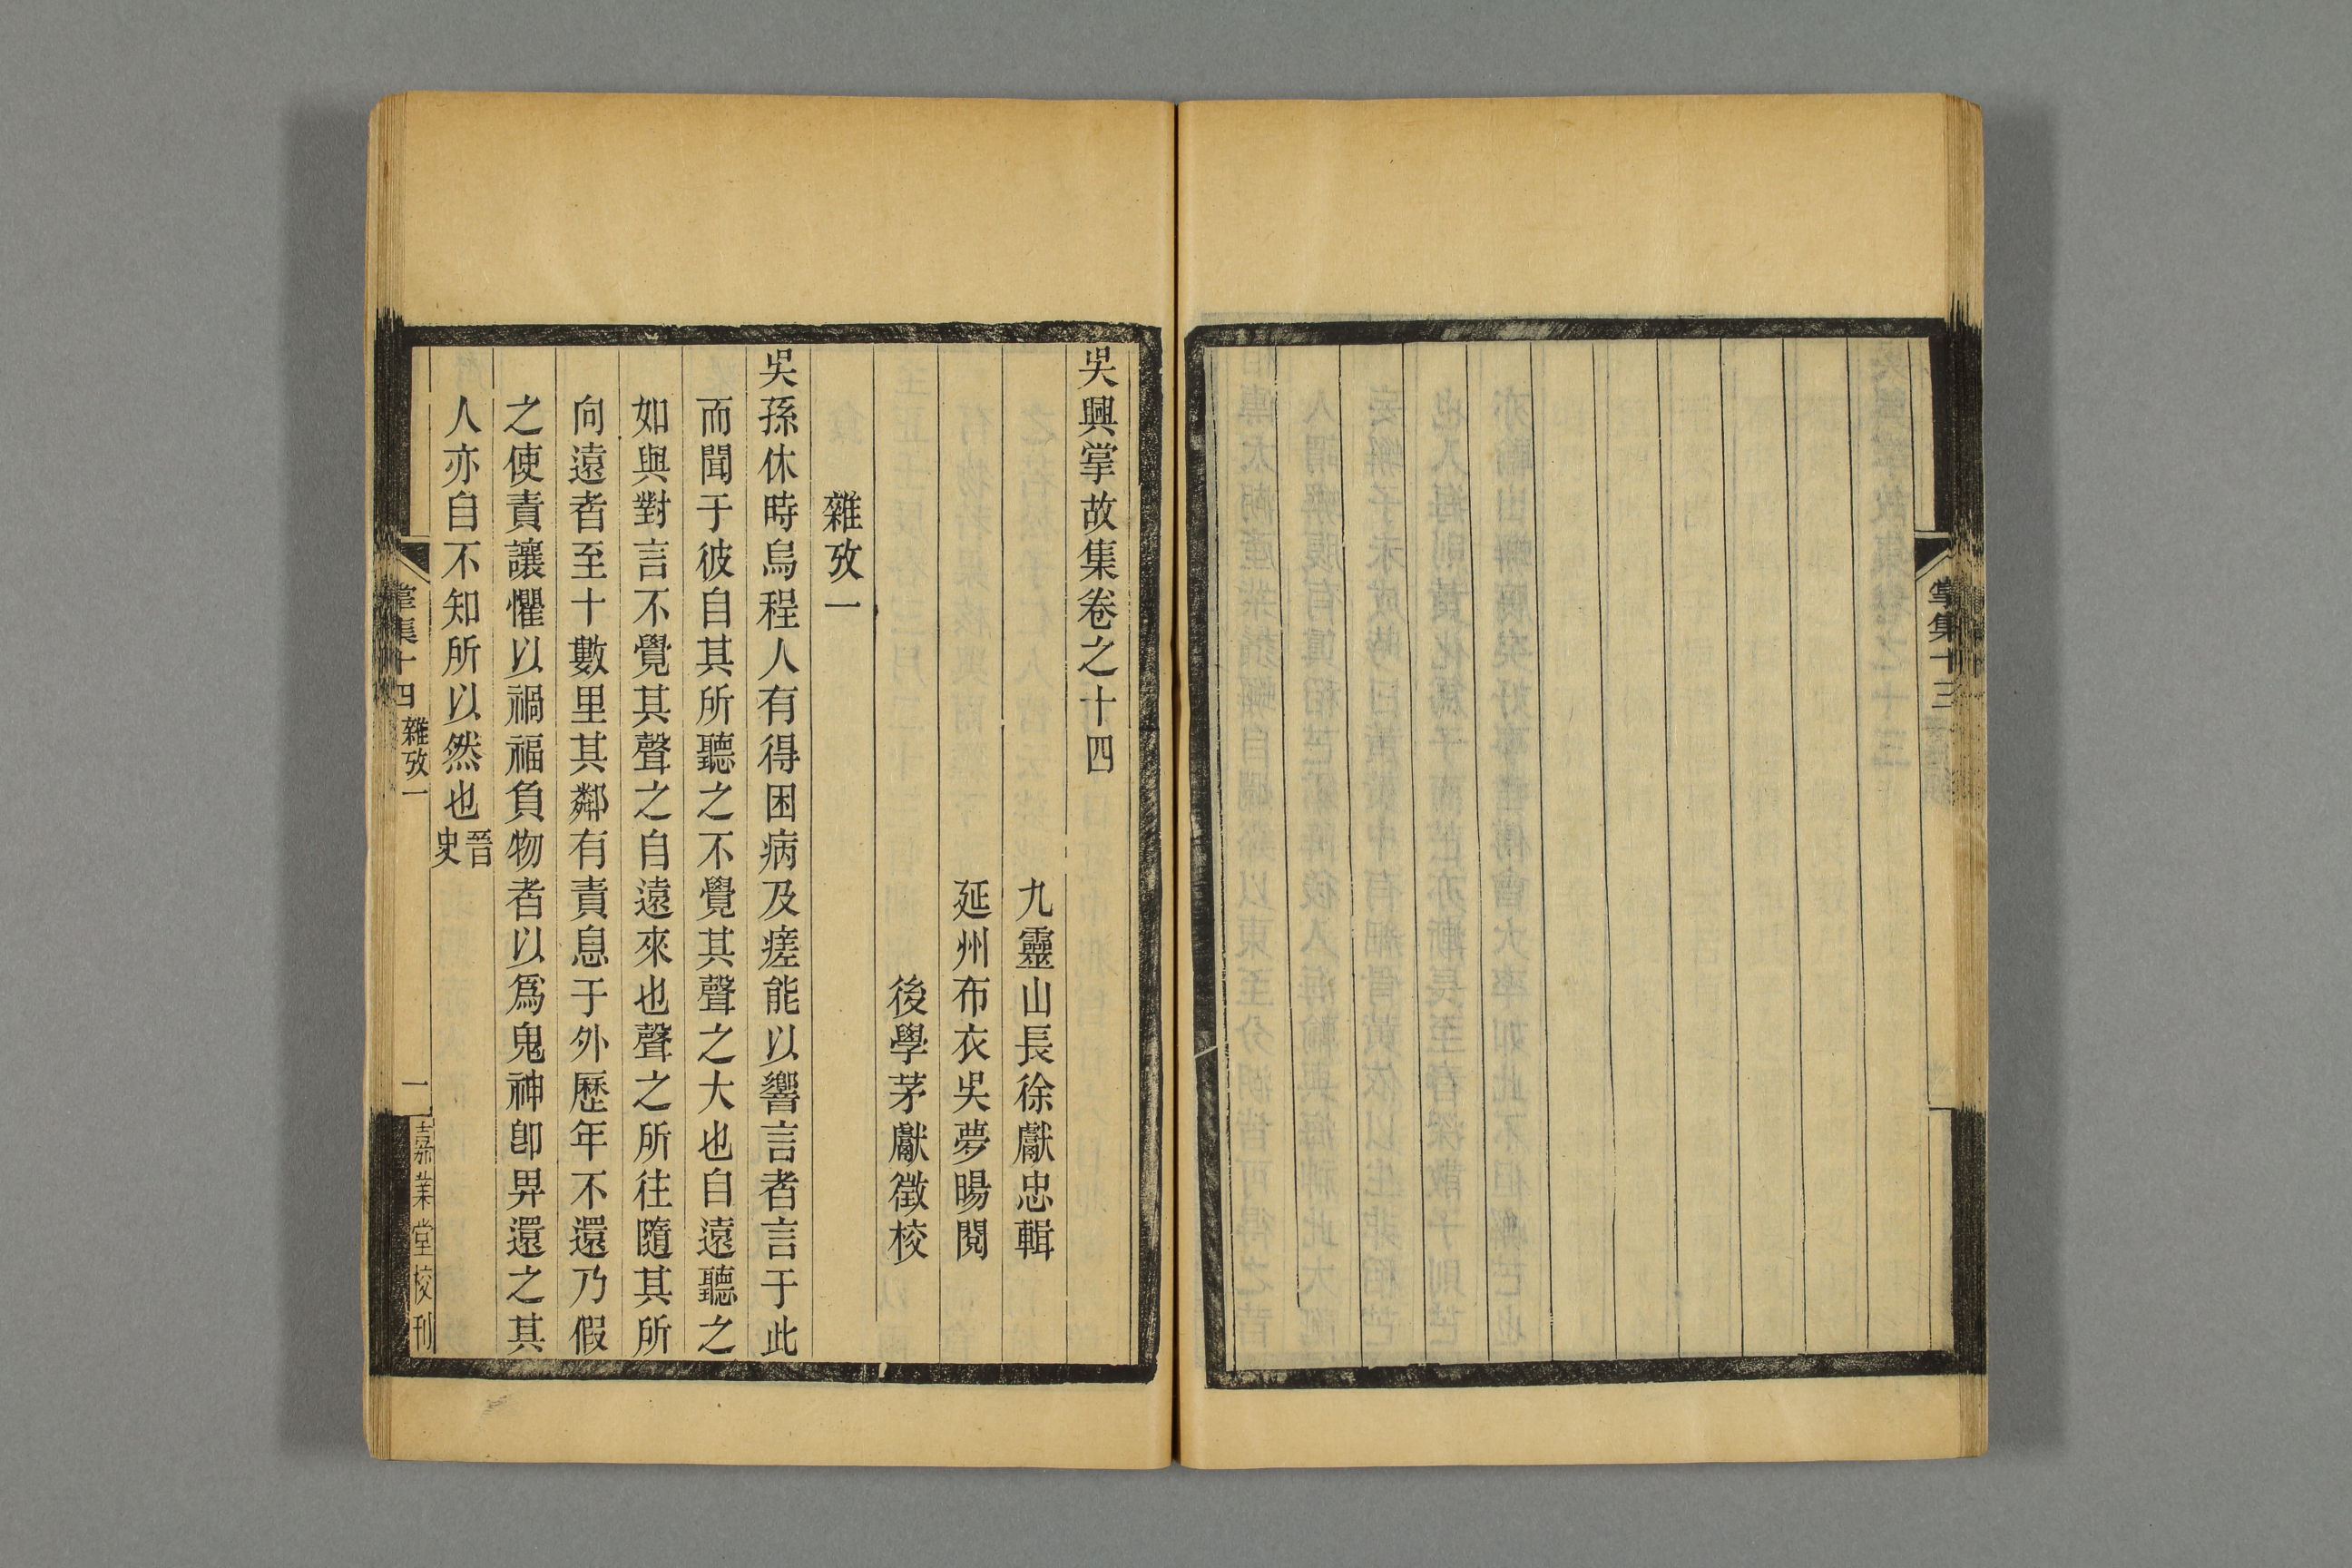 掌集十三
吳興掌故集卷之十四
九靈山長徐獻忠輯
延州布衣吳夢暘閱
後學茅獻徵校
雜攷一
吳孫休時烏程人有得困病及瘥能以響言者言于此
而聞于彼自其所聽之不覺其聲之大也自遠聽之
如與對言不覺其聲之自遠來也聲之所往隨其所
向遠者至十數里其鄰有責息于外歷年不還乃假
之使責讓懼以禍福負物者以爲鬼神卽畀還之其
人亦自不知所以然也晉史
掌集十四 雜攷一 一 嘉業堂校刊